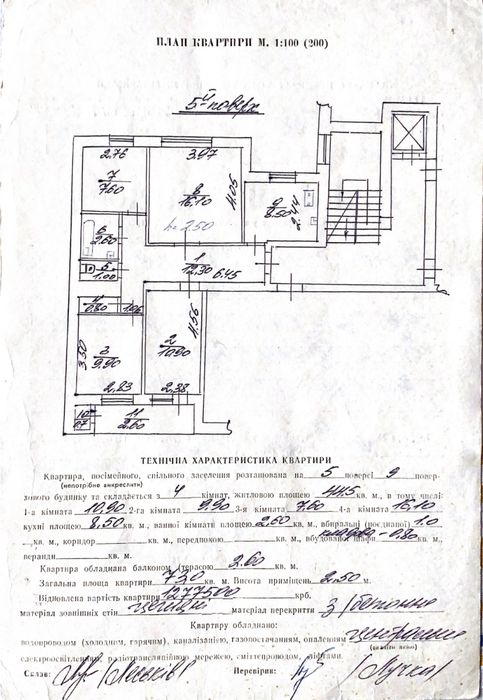 ПЛАН КВАРТИРИ М. 1:100 (200)
5й поверх
2.76
3.97
7
7.60
8
16.10
4.05
9
8.50
2.44
h=2.50
6
2.60
5
1.00
1
12.30
6.45
4
0.80
1.06
4.56
3.50
3
9.90
2
10.90
2.83
2.38
10
0.7
11
2.60
ТЕХНІЧНА ХАРАКТЕРИСТИКА КВАРТИРИ
Квартира, посімейного, спільного заселення розташована на 5 поверсі 9 повер-
(непотрібне викреслити)
хового будинку та складається з 4 кімнат, житловою площею 44.5 кв. м., в тому числі:
1-а кімната 10,90 2-га кімната 9.90 3-я кімната 7.60 4-а кімната 16,10
кухні площею 8,50 кв. м., ванної кімнати площею 2,60 кв. м., вбиральні (поєднаної) 1.0
кв. м., коридор кв. м., передпокою кв. м., вбудовані шафи 0.80 кв. м.,
веранди кв. м.
Квартира обладнана балконом (терасою) 2.60 кв. м.
Загальна площа квартири 73,0 кв. м. Висота приміщень 2,50 м.
Відновлена вартість квартири 1277500 крб.
матеріал зовнішніх стін матеріал перекриття з/бетонне
Квартиру обладнано:
водопроводом (холодним, гарячим), каналізацією, газопостачанням, опаленням центральне
(вказати яким)
електроосвітленням, радіотрансляційною мережею, сміттєпроводом, ліфтами.
Склав: Перевірив: